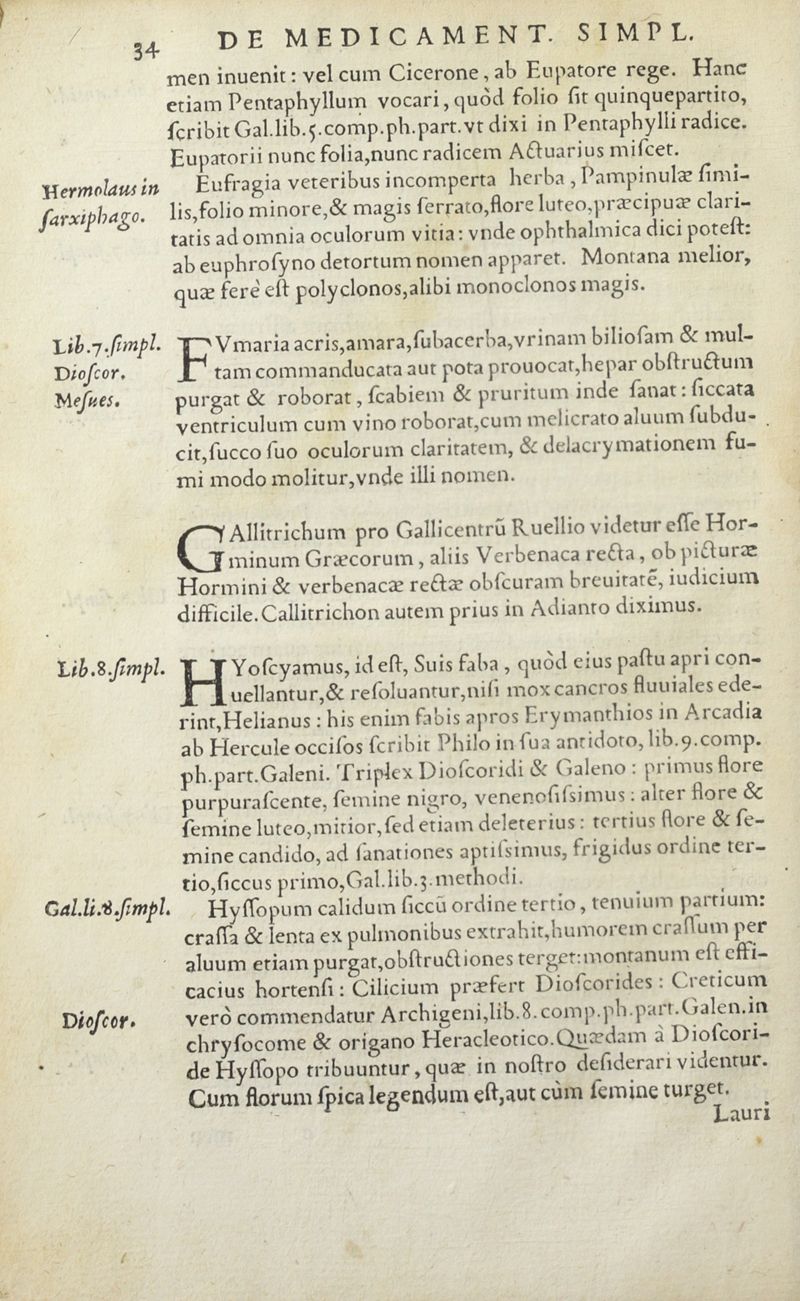 34 DE MEDICAMENT. SIMPL.
men inuenit: vel cum Cicerone, ab Eupatore rege. Hanc
etiam Pentaphyllum vocari, quòd folio ſit quinquepartito,
ſcribit Gal.lib.5.comp.ph.part.vt dixi in Pentaphylli radice.
Eupatorii nunc folia,nunc radicem Actuarius miſcet.
Hermolaus in
ſarxiphago.
Eufragia veteribus incomperta herba, Pampinulæ ſimi-
lis,folio minore,& magis ſerrato,flore luteo,præcipuæ clari-
tatis ad omnia oculorum vitia: vnde ophthalmica dici poteſt:
ab euphroſyno detortum nomen apparet. Montana melior,
quæ ferè eſt polyclonos,alibi monoclonos magis.
Lib.7.ſimpl.
Dioſcor.
Meſues.
FVmaria acris,amara,ſubacerba,vrinam bilioſam & mul-
tam commanducata aut pota prouocat,hepar obſtructum
purgat & roborat, ſcabiem & pruritum inde ſanat: ſiccata
ventriculum cum vino roborat,cum melicrato aluum ſubdu-
cit,ſucco ſuo oculorum claritatem, & delacrymationem fu-
mi modo molitur,vnde illi nomen.
GAllitrichum pro Gallicentrū Ruellio videtur eſſe Hor-
minum Græcorum, aliis Verbenaca recta, ob picturæ
Hormini & verbenacæ rectæ obſcuram breuitatē, iudicium
difficile.Callitrichon autem prius in Adianto diximus.
Lib.8.ſimpl.
HYoſcyamus, id eſt, Suis faba, quòd eius paſtu apri con-
uellantur,& reſoluantur,niſi mox cancros fluuiales ede-
rint,Helianus: his enim fabis apros Erymanthios in Arcadia
ab Hercule occiſos ſcribit Philo in ſua antidoto, lib.9.comp.
ph.part.Galeni. Triplex Dioſcoridi & Galeno: primus flore
purpuraſcente, ſemine nigro, venenoſiſsimus: alter flore &
ſemine luteo,mitior,ſed etiam deleterius: tertius flore & ſe-
mine candido, ad ſanationes aptiſsimus, frigidus ordine ter-
tio,ſiccus primo,Gal.lib.3.methodi.
Gal.li.8.ſimpl.
Hyſſopum calidum ſiccū ordine tertio, tenuium partium:
craſſa & lenta ex pulmonibus extrahit,humorem craſſum per
aluum etiam purgat,obſtructiones terget:montanum eſt effi-
cacius hortenſi: Cilicium præfert Dioſcorides: Creticum
Dioſcor.
verò commendatur Archigeni,lib.8.comp.ph.part.Galen.in
chryſocome & origano Heracleotico.Quædam à Dioſcori-
de Hyſſopo tribuuntur, quæ in noſtro deſiderari videntur.
Cum florum ſpica legendum eſt,aut cùm ſemine turget.
Lauri